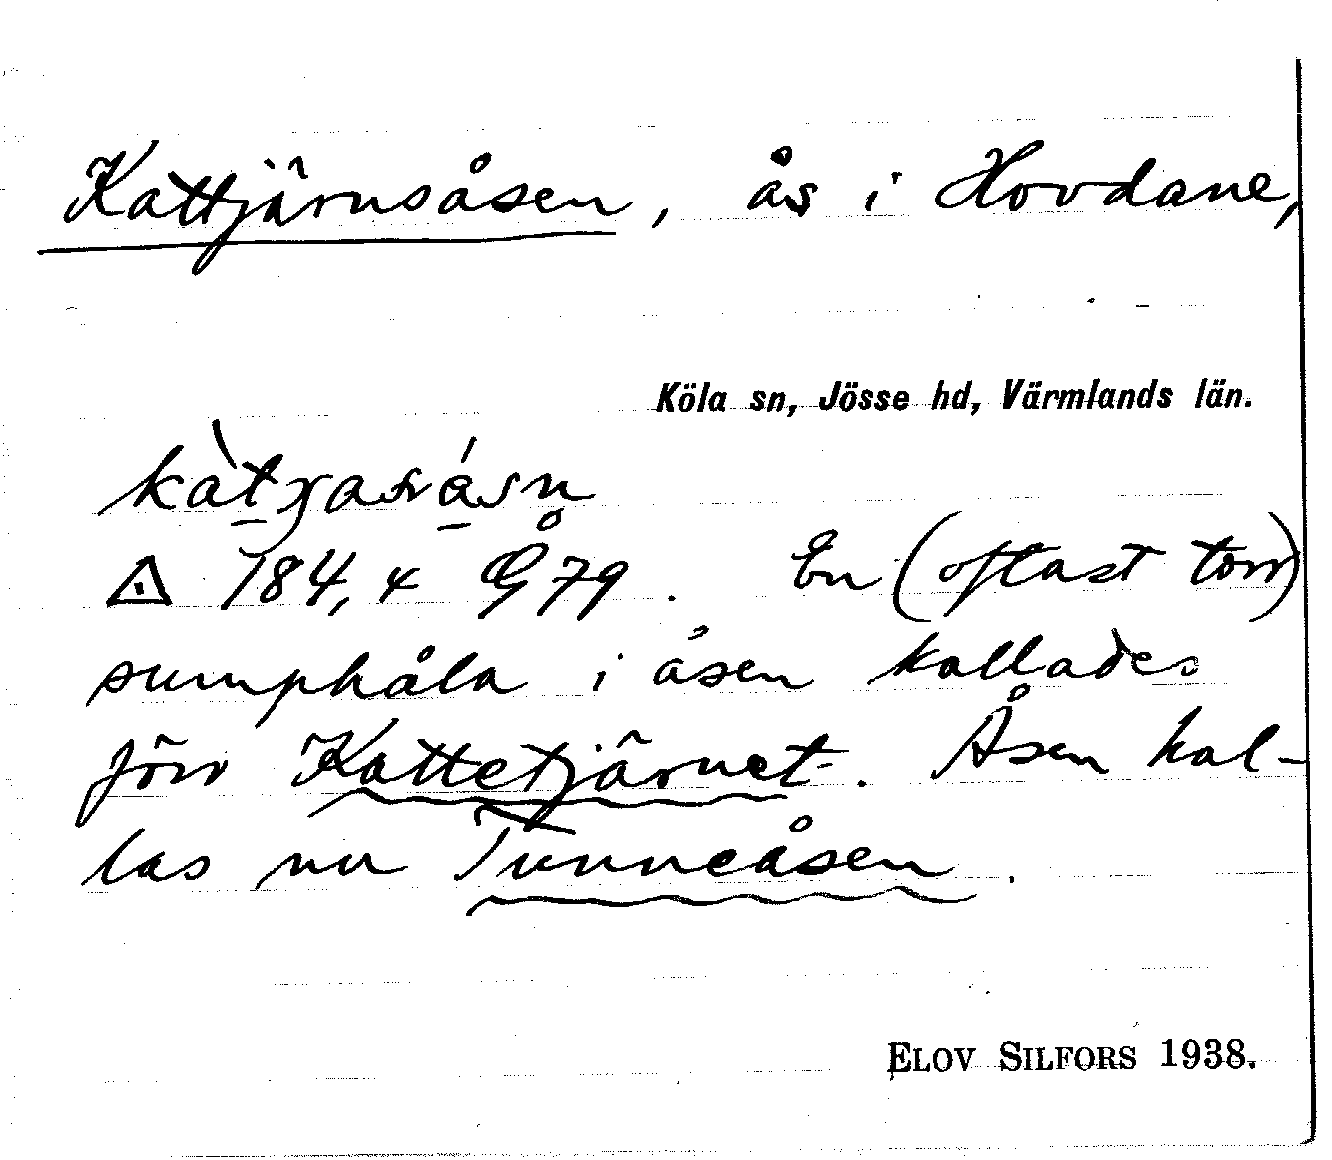 Kattjärnsåsen, ås i Hovdane,
Köla sn, Jösse hd, Värmlands län.
184,4 Å79. En (oftast torr)
sumphåla i åsen kallades
förr Kattetjärnet. Åsen kal-
las nu Tunneåsen.
ELOV SILFORS 1938.